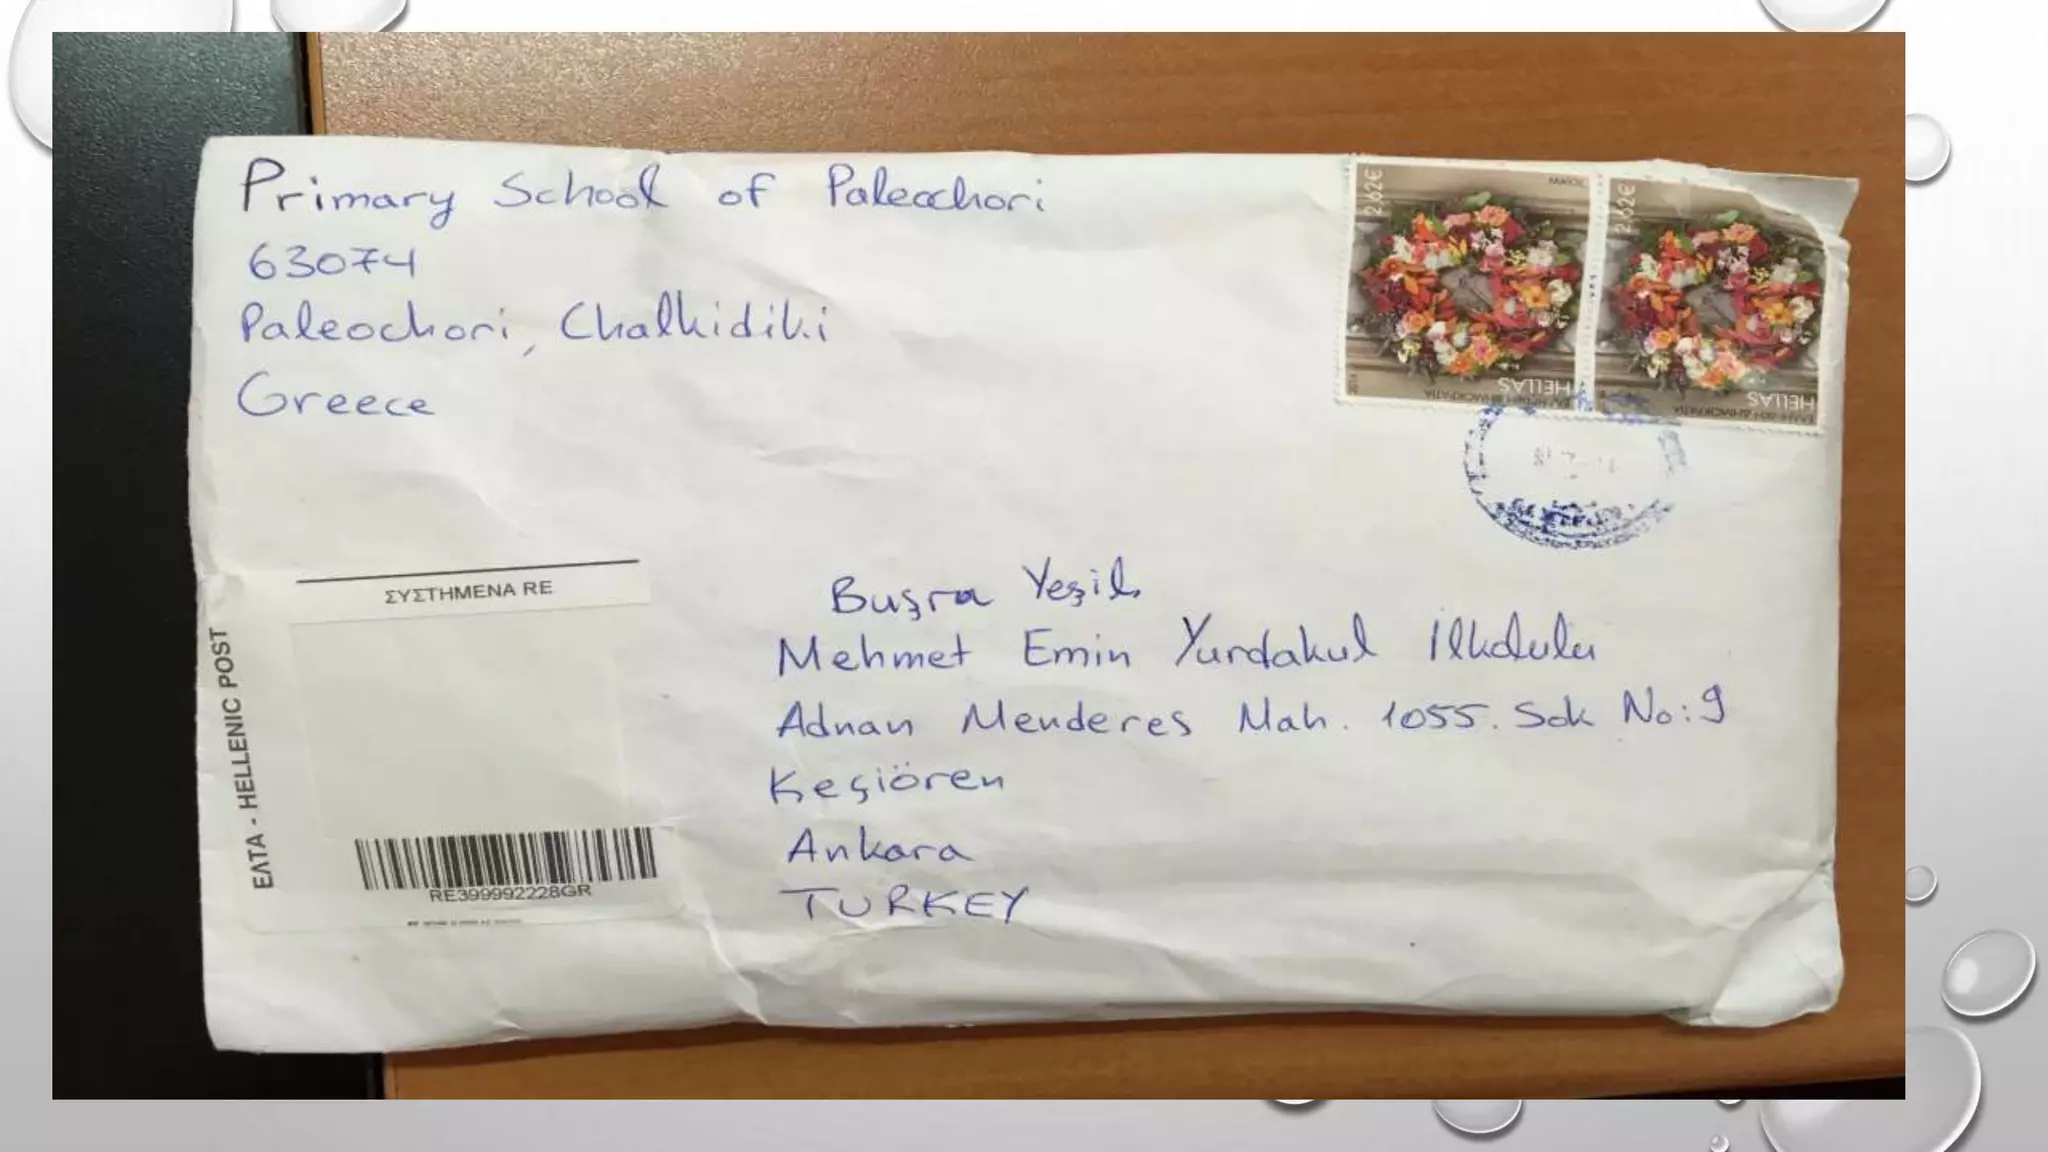 Primary School of Paleochori
63074
Paleochori, Chalkidiki
Greece
2.62€
ΜΑΪΟΣ
HELLAS
ΕΛΛΗΝΙΚΗ ΔΗΜΟΚΡΑΤΙΑ
2.62€
HELLAS
ΕΛΛΗΝΙΚΗ ΔΗΜΟΚΡΑΤΙΑ
ΣΥΣΤΗΜΕΝΑ RE
ΕΛΤΑ - HELLENIC POST
RE399992228GR
Buşra Yeşil
Mehmet Emin Yurdakul İlkokulu
Adnan Menderes Mah. 1055. Sok No:9
Keçiören
Ankara
TURKEY